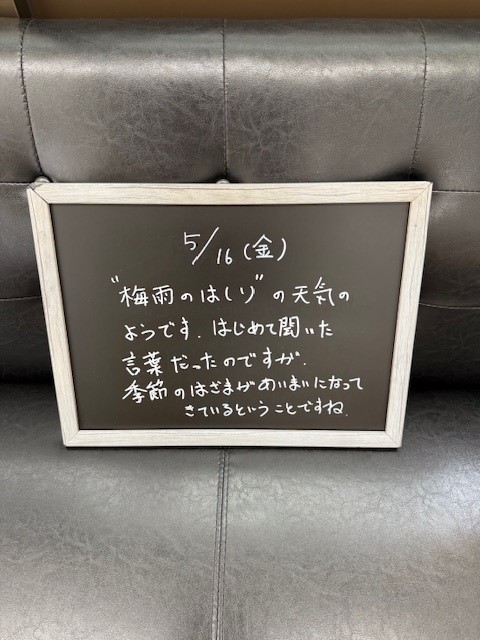 5/16(金)
"梅雨のはしり"の天気の
ようです．はじめて聞いた
言葉だったのですが．
季節のはざまがあいまいになって
きているということですね．